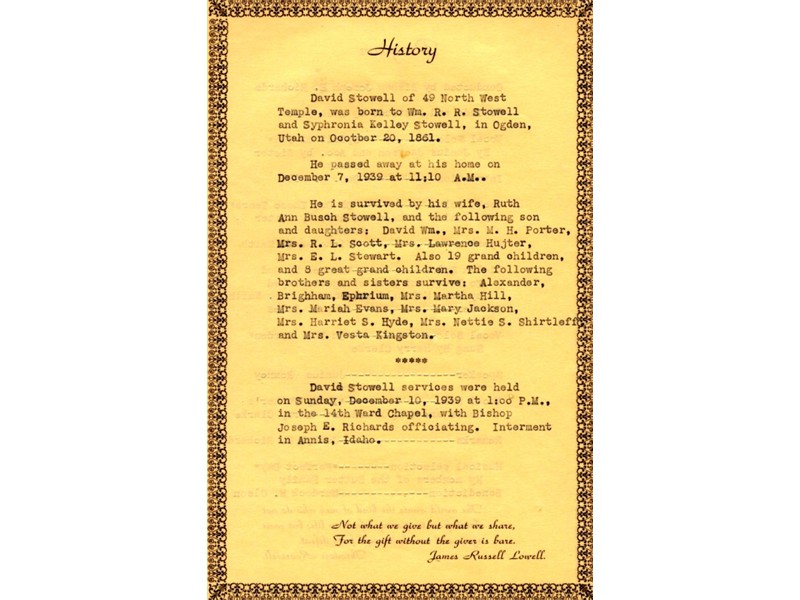 History
David Stowell of 49 North West
Temple, was born to Wm. R. R. Stowell
and Syphronia Kelley Stowell, in Ogden,
Utah on Ocotber 20, 1861.
He passed away at his home on
December 7, 1939 at 11;10 A.M..
He is survived by his wife, Ruth
Ann Busch Stowell, and the following son
and daughters: David Wm., Mrs. M. H. Porter,
Mrs. R. L. Scott, Mrs. Lawrence Hujter,
Mrs. E. L. Stewart. Also 19 grand children,
and 8 great grand children. The following
brothers and sisters survive: Alexander,
Brighham, Ephrium, Mrs. Martha Hill,
Mrs. Mariah Evans, Mrs. Mary Jackson,
Mrs. Harriet S. Hyde, Mrs. Nettie S. Shirtleff
and Mrs. Vesta Kingston.
*****
David Stowell services were held
on Sunday, December 10, 1939 at 1:00 P.M.,
in the 14th Ward Chapel, with Bishop
Joseph E. Richards officiating. Interment
in Annis, Idaho.
Not what we give but what we share,
For the gift without the giver is bare.
James Russell Lowell.